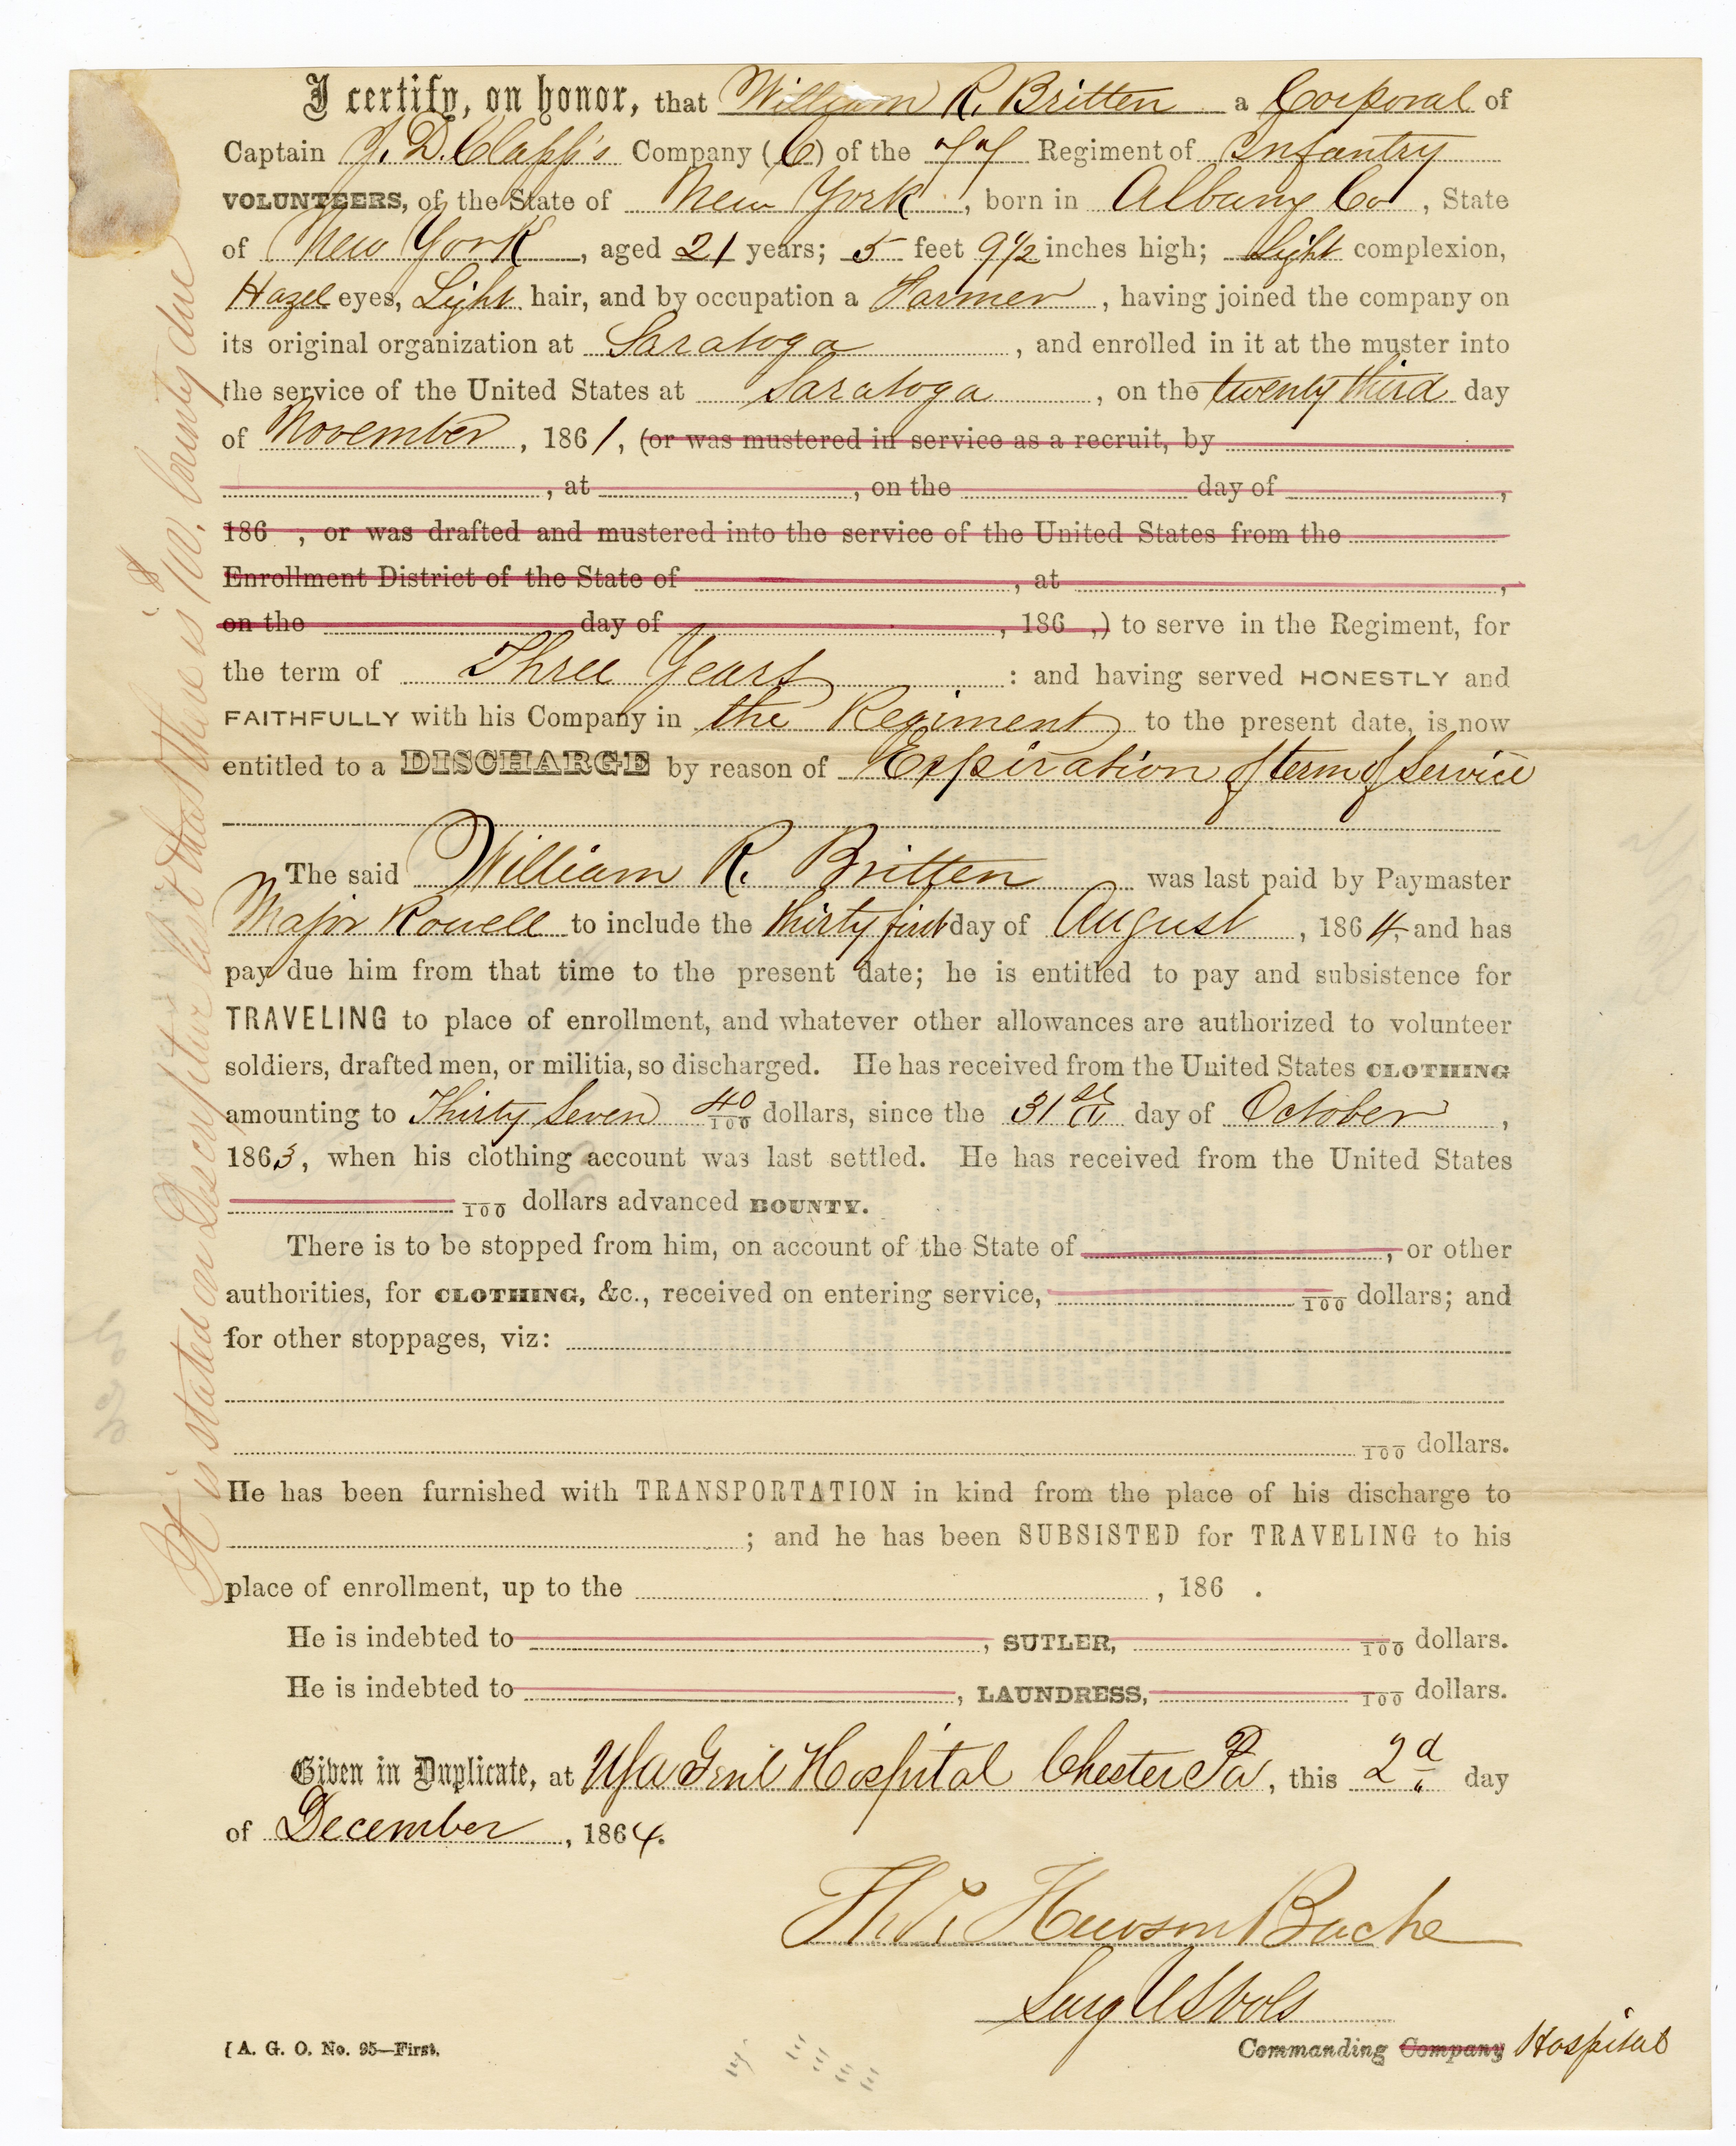 I certify, on honor, that William R. Britten a Corporal of
Captain J. D. Clapp's Company (C) of the 77 Regiment of Infantry
VOLUNTEERS, of the State of New York, born in Albany Co, State
of New York, aged 21 years; 5 feet 9½ inches high; Light complexion,
Hazel eyes, Light hair, and by occupation a Farmer, having joined the company on
its original organization at Saratoga, and enrolled in it at the muster into
the service of the United States at Saratoga, on the twenty third day
of November, 1861, (or was mustered in service as a recruit, by
, at , on the day of ,
186 , or was drafted and mustered into the service of the United States from the
Enrollment District of the State of , at ,
on the day of , 186 ,) to serve in the Regiment, for
the term of Three Years : and having served HONESTLY and
FAITHFULLY with his Company in the Regiment to the present date, is now
entitled to a DISCHARGE by reason of Expiration of term of Service
The said William R. Britten was last paid by Paymaster
Major Rowell to include the thirty first day of August, 1864, and has
pay due him from that time to the present date; he is entitled to pay and subsistence for
TRAVELING to place of enrollment, and whatever other allowances are authorized to volunteer
soldiers, drafted men, or militia, so discharged. He has received from the United States CLOTHING
amounting to Thirty Seven 40/100 dollars, since the 31st day of October,
1863, when his clothing account was last settled. He has received from the United States
/100 dollars advanced BOUNTY.
There is to be stopped from him, on account of the State of , or other
authorities, for CLOTHING, &c., received on entering service, /100 dollars; and
for other stoppages, viz:
/100 dollars.
He has been furnished with TRANSPORTATION in kind from the place of his discharge to
; and he has been SUBSISTED for TRAVELING to his
place of enrollment, up to the , 186 .
He is indebted to , SUTLER, /100 dollars.
He is indebted to , LAUNDRESS, /100 dollars.
Given in Duplicate, at USA Genl Hospital Chester Pa, this 2d day
of December, 1864.
Th. Hewson Bache
Surg US Vols
[A. G. O. No. 95—First.
Commanding Company Hospital
It is stated on Descriptive list that there is $100. bounty due